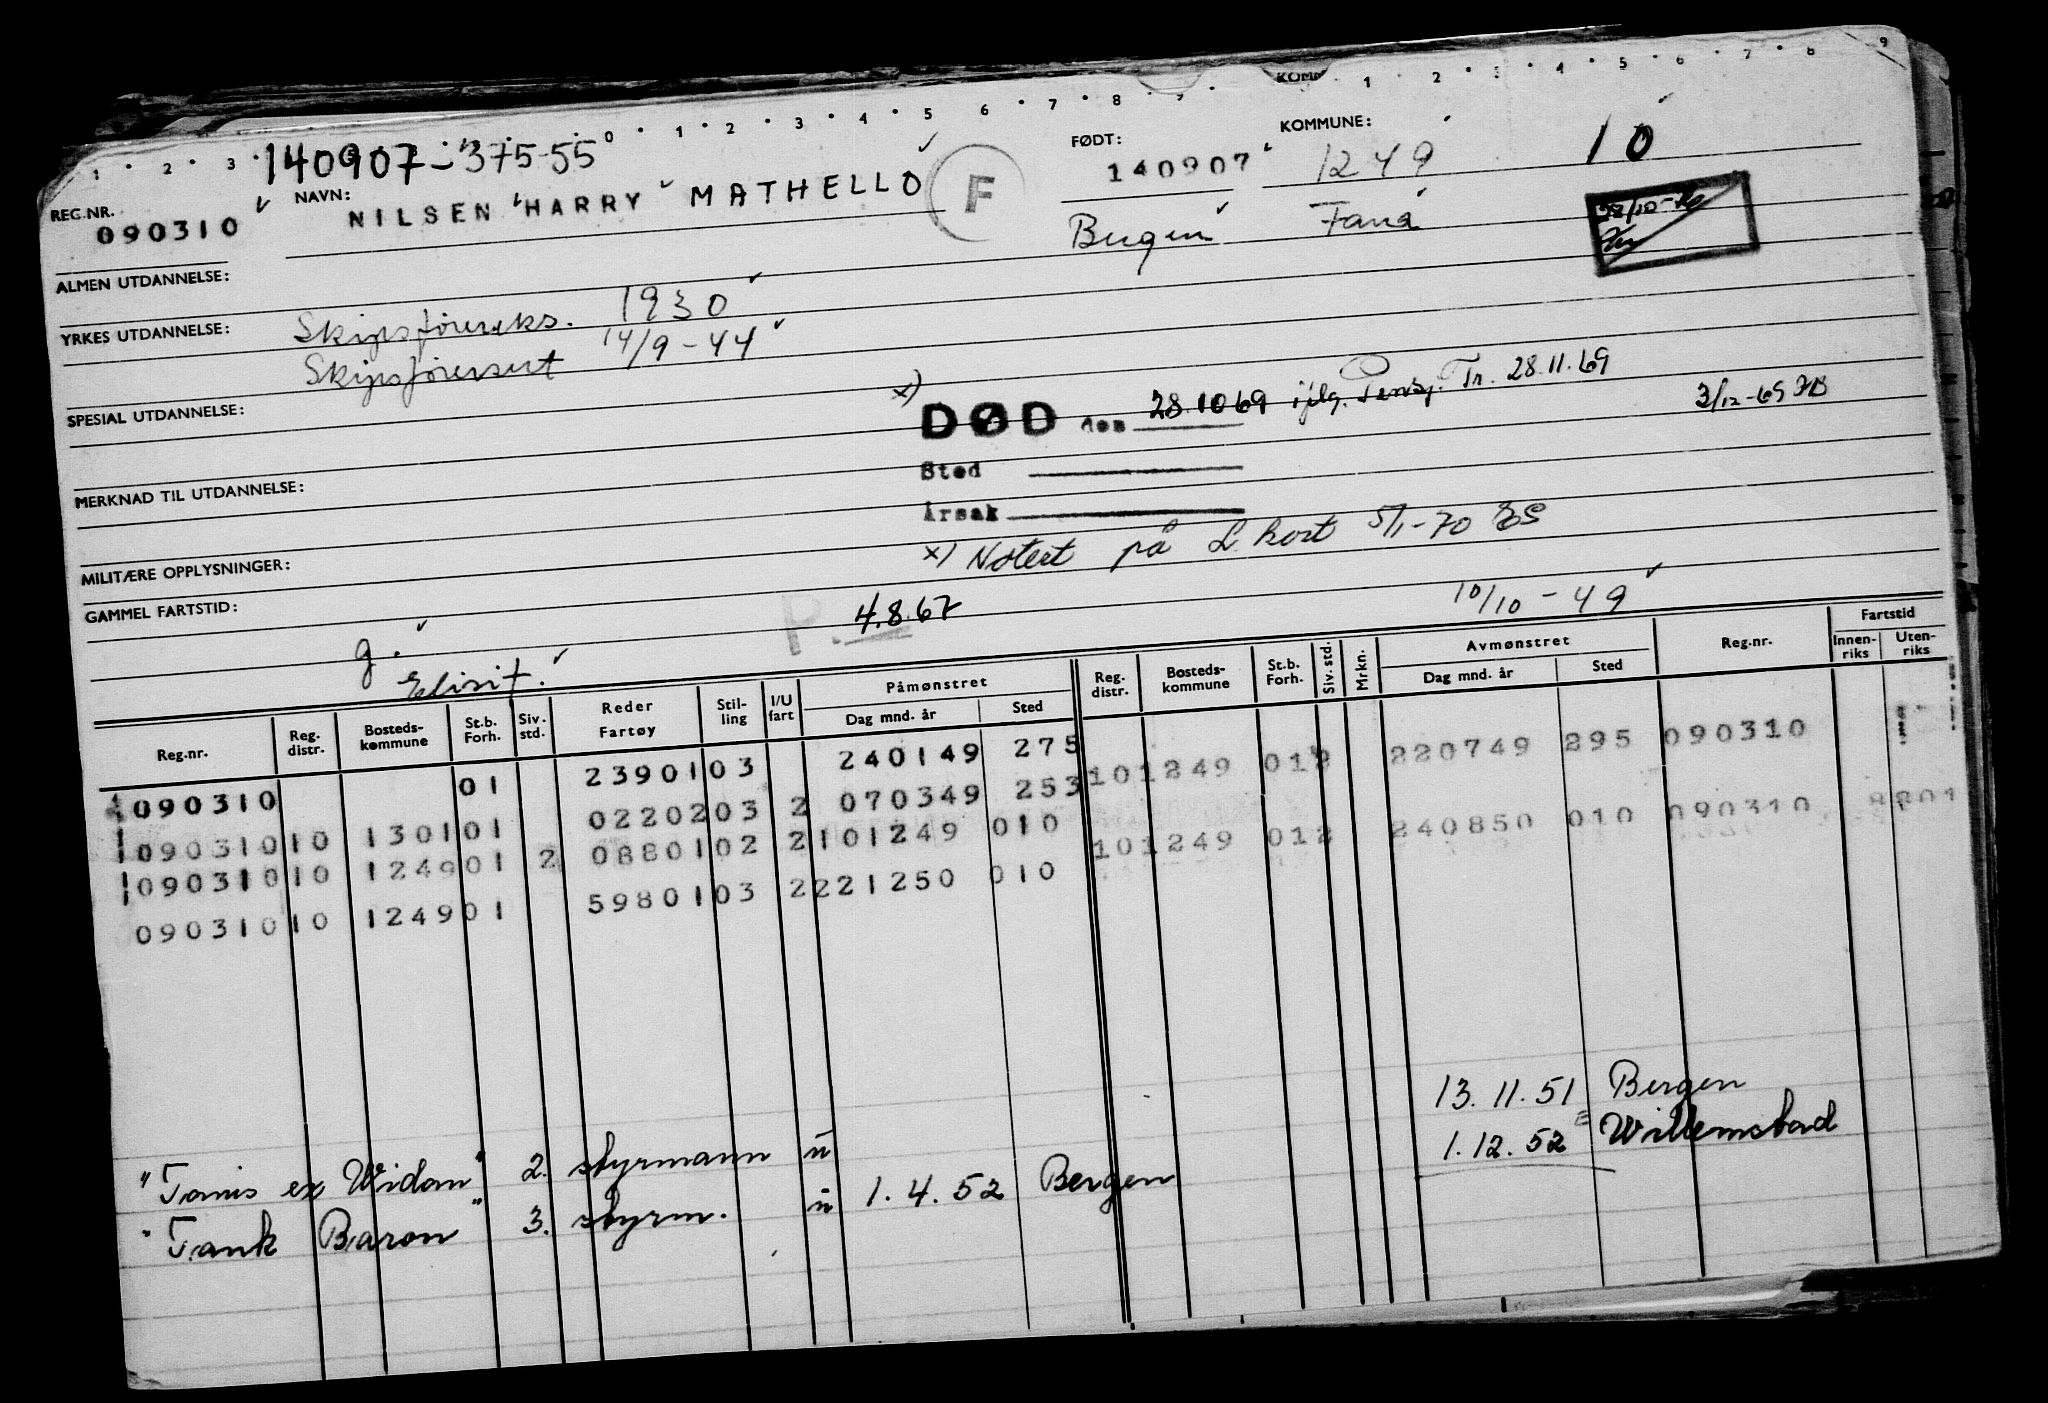 KOMM
1 • 2 • 3 • 0 • 1 • 2 • 3 • 4 • 5 6 • 7 • 8 1 • 2 • 3 • 4 • 5 • 6 • 7 • 8 9
140907-375-55
REG.NR. NAVN: FØDT: KOMMUNE:
090310 NILSEN HARRY MATHELLO F 140907 1249 10
Bergen Fana
ALMEN UTDANNELSE:
YRKES UTDANNELSE: Skipsførereks. 1930
Skipsførersert 14/9-44
SPESIAL UTDANNELSE:
x) DØD den 28.10.69 iflg. Pensj. Tr. 28.11.69 3/12-69
Sted
MERKNAD TIL UTDANNELSE:
Årsak
x) Notert på L kort 5/1-70
MILITÆRE OPPLYSNINGER:
GAMMEL FARTSTID:
P. 4.8.67 10/10-49
g.
Reg.nr. Reg. distr. Bosteds-kommune St.b. Forh. Siv. std. Reder Fartøy Stil-ling I/U fart Påmønstret Dag mnd. år Sted Reg. distr. Bosteds-kommune St.b. Forh. Siv. std. Mrkn. Avmønstret Dag mnd. år Sted Reg.nr. Fartstid Innen-riks Uten-riks
090310 01 23901 03 240149 275
090310 10 1301 01 02202 03 2 070349 253 10 1249 01 2 220749 295 090310
090310 10 1249 01 2 08801 02 2 101249 010 10 1249 01 2 240850 010 090310
090310 10 1249 01 59801 03 2 221250 010
"Tamis ex Widan" 2. styrmann u 13.11.51 Bergen
"Tank Baron" 3. styrm. u 1.4.52 Bergen 1.12.52 Willemstad